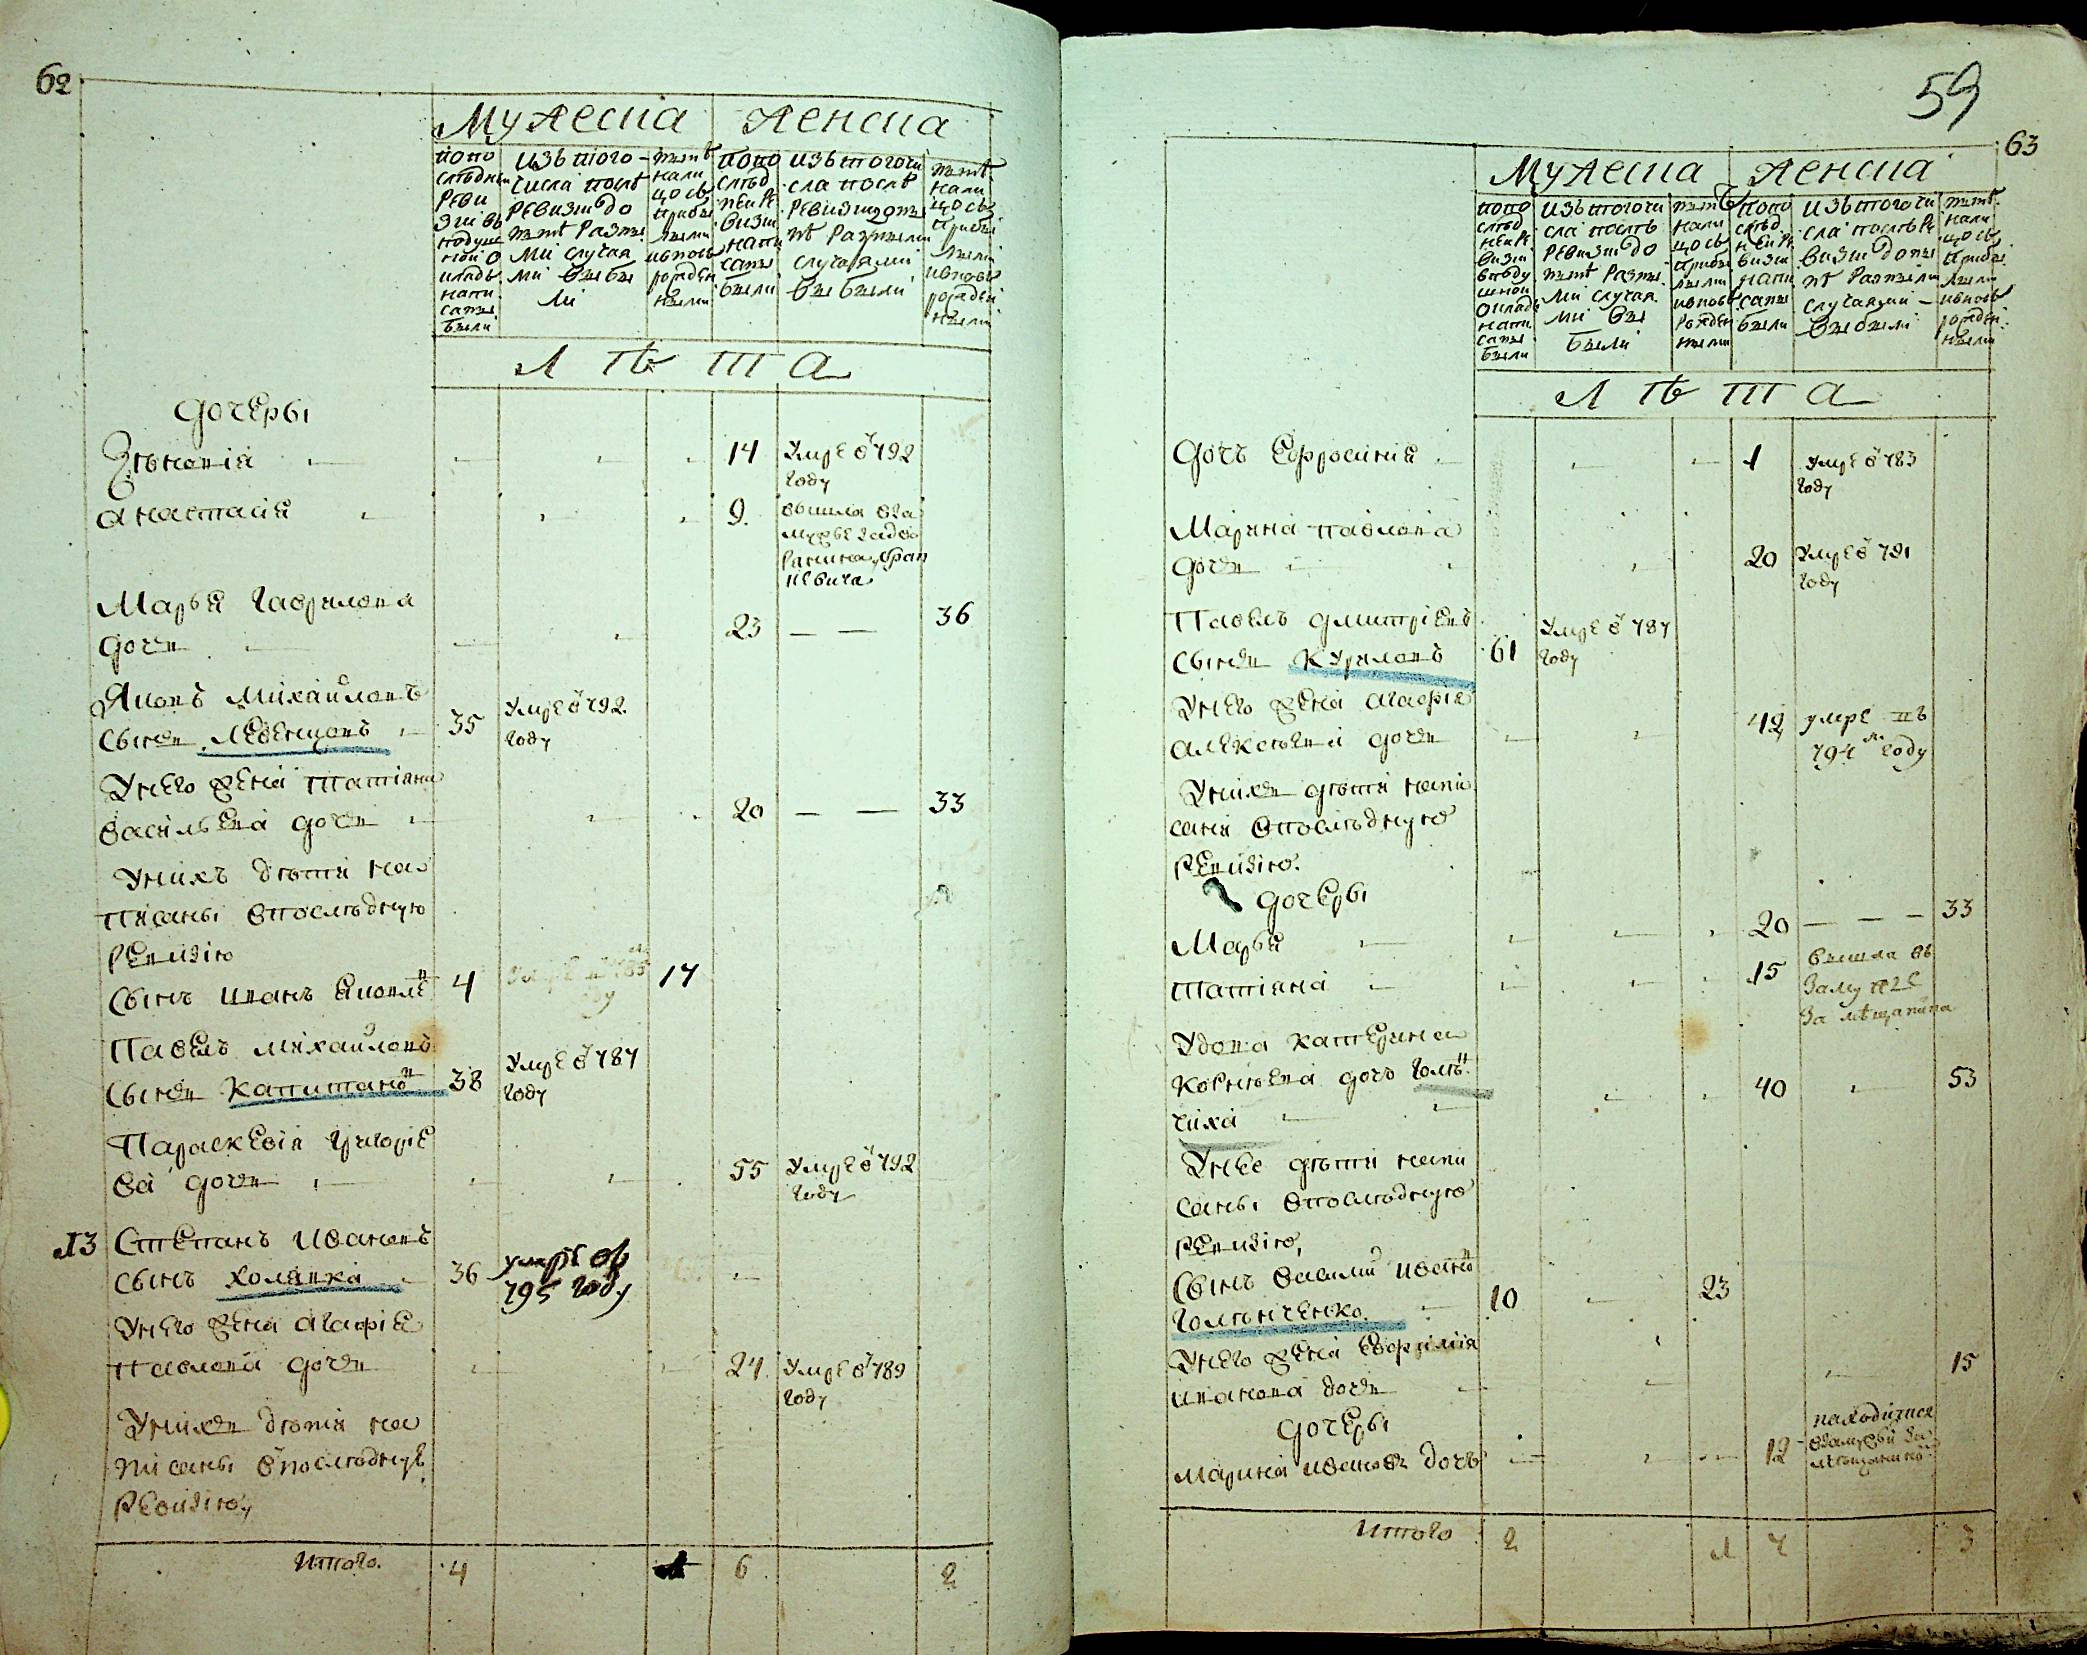 62
Мужеска Женска
попо
следней
реви
зии въ
подуш
ной о
кладъ
напи
саны
были
изъ того
числа послѣ
ревизіи до
нынѣ разны
ми случая
ми выбы
ли
нынѣ
нали
цо съ
прибы
лыми
ивновь
рожден
ными
попо
слѣд
ней ре
визіи
напи
саны
были
изъ того чи
сла послѣ
ревизіи доны
нѣ разными
случаями
выбыли
нынѣ
нали
цо съ
прибы
лыми
ивновь
рожден
ными
Л ѣ т а
дочеры
Зѣновія 14 Умре в 792
году
анастасія 9 вышла вза
мужье заdво
ранина
Марья гаврилова
дочь 23 — — 36
Яковъ михайловъ
сынъ Левенцовъ 35 Умре в 792
году
Унего жена татіяна
васильева дочь 20 — — 33
Унихъ дѣти на
писаны впослѣдную
ревизію
Сынъ иванъ 4 17
Павелъ михайловъ
сынъ капитано 38 Умре в 787
году
Параскевія григорiе
ва дочь 55 Умре в 792
году
13 Степанъ ивановъ
сынъ холявка 36 умре въ
795 году
Унего жена агафія
павлова дочь 24 Умре в 789
году
Унихъ дѣти на
писаны впослѣдную
ревизію
Итого 4 1 6 2
59
63
Мужеска Женска
попо
слѣд
ней ре
визіи
вподу
шной
окладъ
напи
саны
были
изъ того чи
сла послѣ
ревизіи до
нынѣ разны
ми случая
ми вы
были
нынѣ
нали
цо съ
прибы
лыми
ивновь
рожден
ными
попо
слѣд
ней ре
визіи
напи
саны
были
изъ того чи
сла послѣ ре
визіи доны
нѣ разными
случаями
выбыли
нынѣ
нали
цо съ
прибы
лыми
ивновь
рожден
ными
Л ѣ т а
Дочь Ефросинія 1 умре в 783
году
Марина павлова
дочь 20 Умре в 791
году
Павелъ дмитріевъ
сынъ Куриловъ 61 Умре в 787
году
Унего жена агафія
алексѣева дочь 42 умре въ
794м году
Унихъ дѣти напи
саны впослѣдную
ревизію.
дочеры
Марья 20 — — — 33
Татіяна 15 вышла въ
замужe
за мѣщанина
Удова катерина
корнѣева дочь голѣ
чиха 40 53
Унее дѣти напи
саны впослѣдную
ревизію,
Сынъ василій ивано
голѣнченко 10 23
Унего жена Евфимія
иванова дочь 15
дочеры
марина иванова дочь 12 находится
взамужьи за
мѣщанино
Итого 2 1 7 3